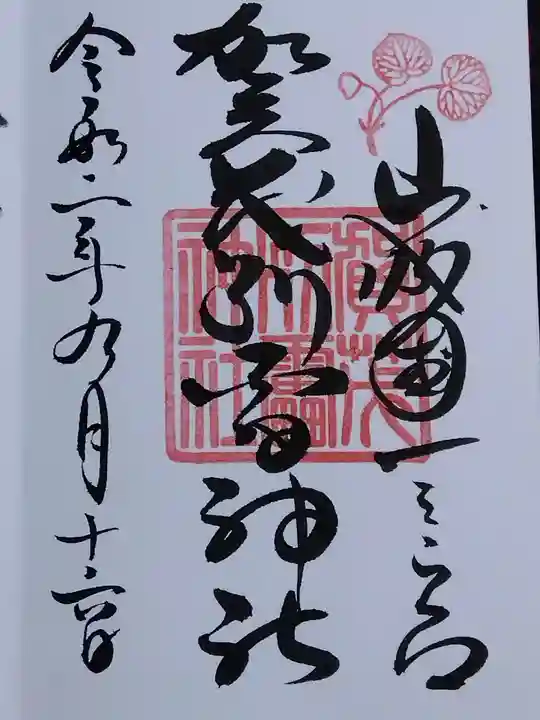 山城國一之宮
賀茂別雷神社
令和二年九月十六日
賀茂
別雷
神社